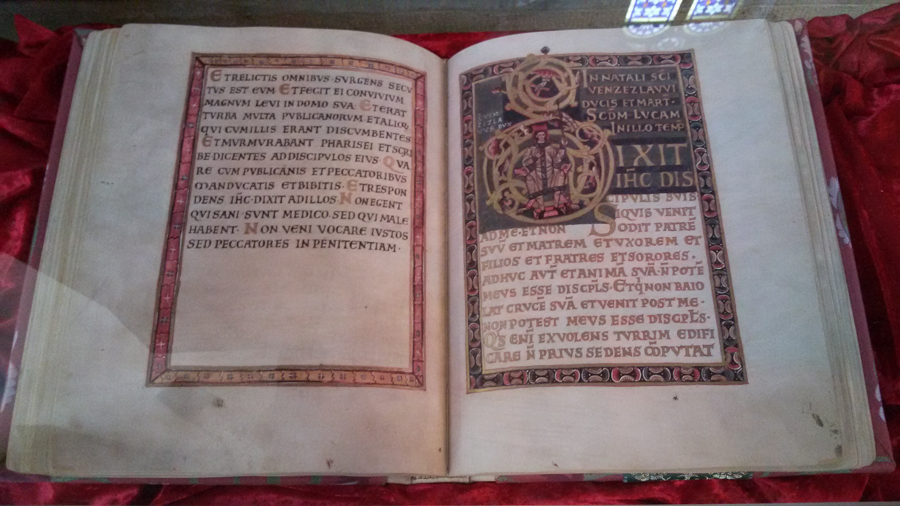 ET RELICTIS OMNIBUS · SURGENS SECU
TUS EST EUM ET FECIT EI CONVIVIUM
MAGNUM LEVI IN DOMO SUA · ET ERAT
TURBA MULTA PUBLICANORUM ET ALIOR̄
QUI CUM ILLIS ERANT DISCUMBENTES
ET MURMURABANT PHARISEI ET SCRI
BE DICENTES AD DISCIPULOS EIUS QUA
RE CUM PUBLICANIS ET PECCATORIBUS
MANDUCATIS ET BIBITIS · ET RESPON
DENS IH̄C · DIXIT AD ILLOS · NON EGENT
QUI SANI SUNT MEDICO · SED QUI MALE
HABENT · NON VENI VOCARE IUSTOS
SED PECCATORES IN PENITENTIAM ·
IN NATALI SCI
VENZEZLAVVI
DUCIS ET MART ·
SCDM LUCAM
IN ILLO TEMP̄
DIXIT
IH̄C DIS
CIPULIS SUIS
SI QUIS VENIT
AD ME · ET NON ODIT PATRĒ
SUU ET MATREM ET UXOREM ET
FILIOS ET FRATRES ET SORORES ·
ADHUC AUT̄ ET ANIMĀ SUĀ · N̄ POTĒ
MEUS ESSE DISCPLS · ET Q̄ NON BAIO
LAT CRUCĒ SUĀ ET VENIT POST ME ·
NON POTEST MEUS ESSE DISCPLS ·
QS ENĪ EX VOLENS TURRIM EDIFI
CARE N̄ PRIUS SEDENS CŌPUTAT